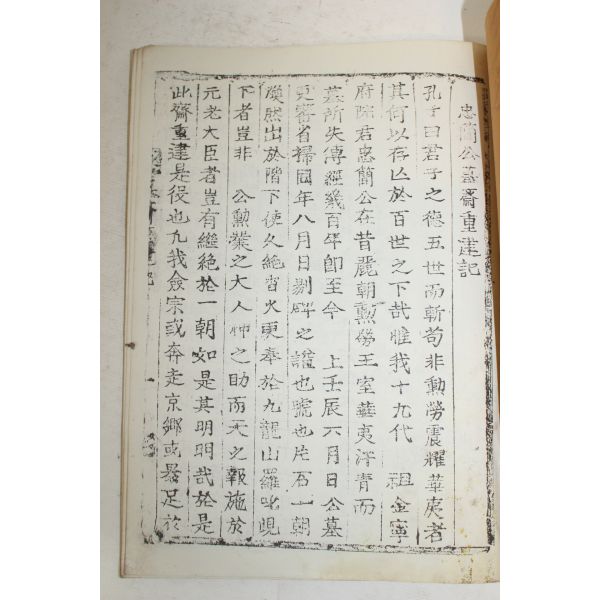 忠簡公墓齋重建記
孔子曰君子之德五世而斬苟非勲勞震耀華夷者
其何以存亾於百世之下哉惟我十九代 祖金寧
府院君忠簡公在昔麗朝勲勞王室華夷汗青而
墓所失傳經幾百年卽至今 上壬辰六月日公墓
更審省掃同年八月日剔碑之譜也號也片石一朝
煥然出於階下使久絶香火更奉於九龍山羅叱峴
下者豈非 公勲業之大人神之助而天之報施於
元老大臣者豈有繼絶於一朝如是其明明哉於是
此齋重建是役也凡我僉宗或奔走京鄕或暴足於